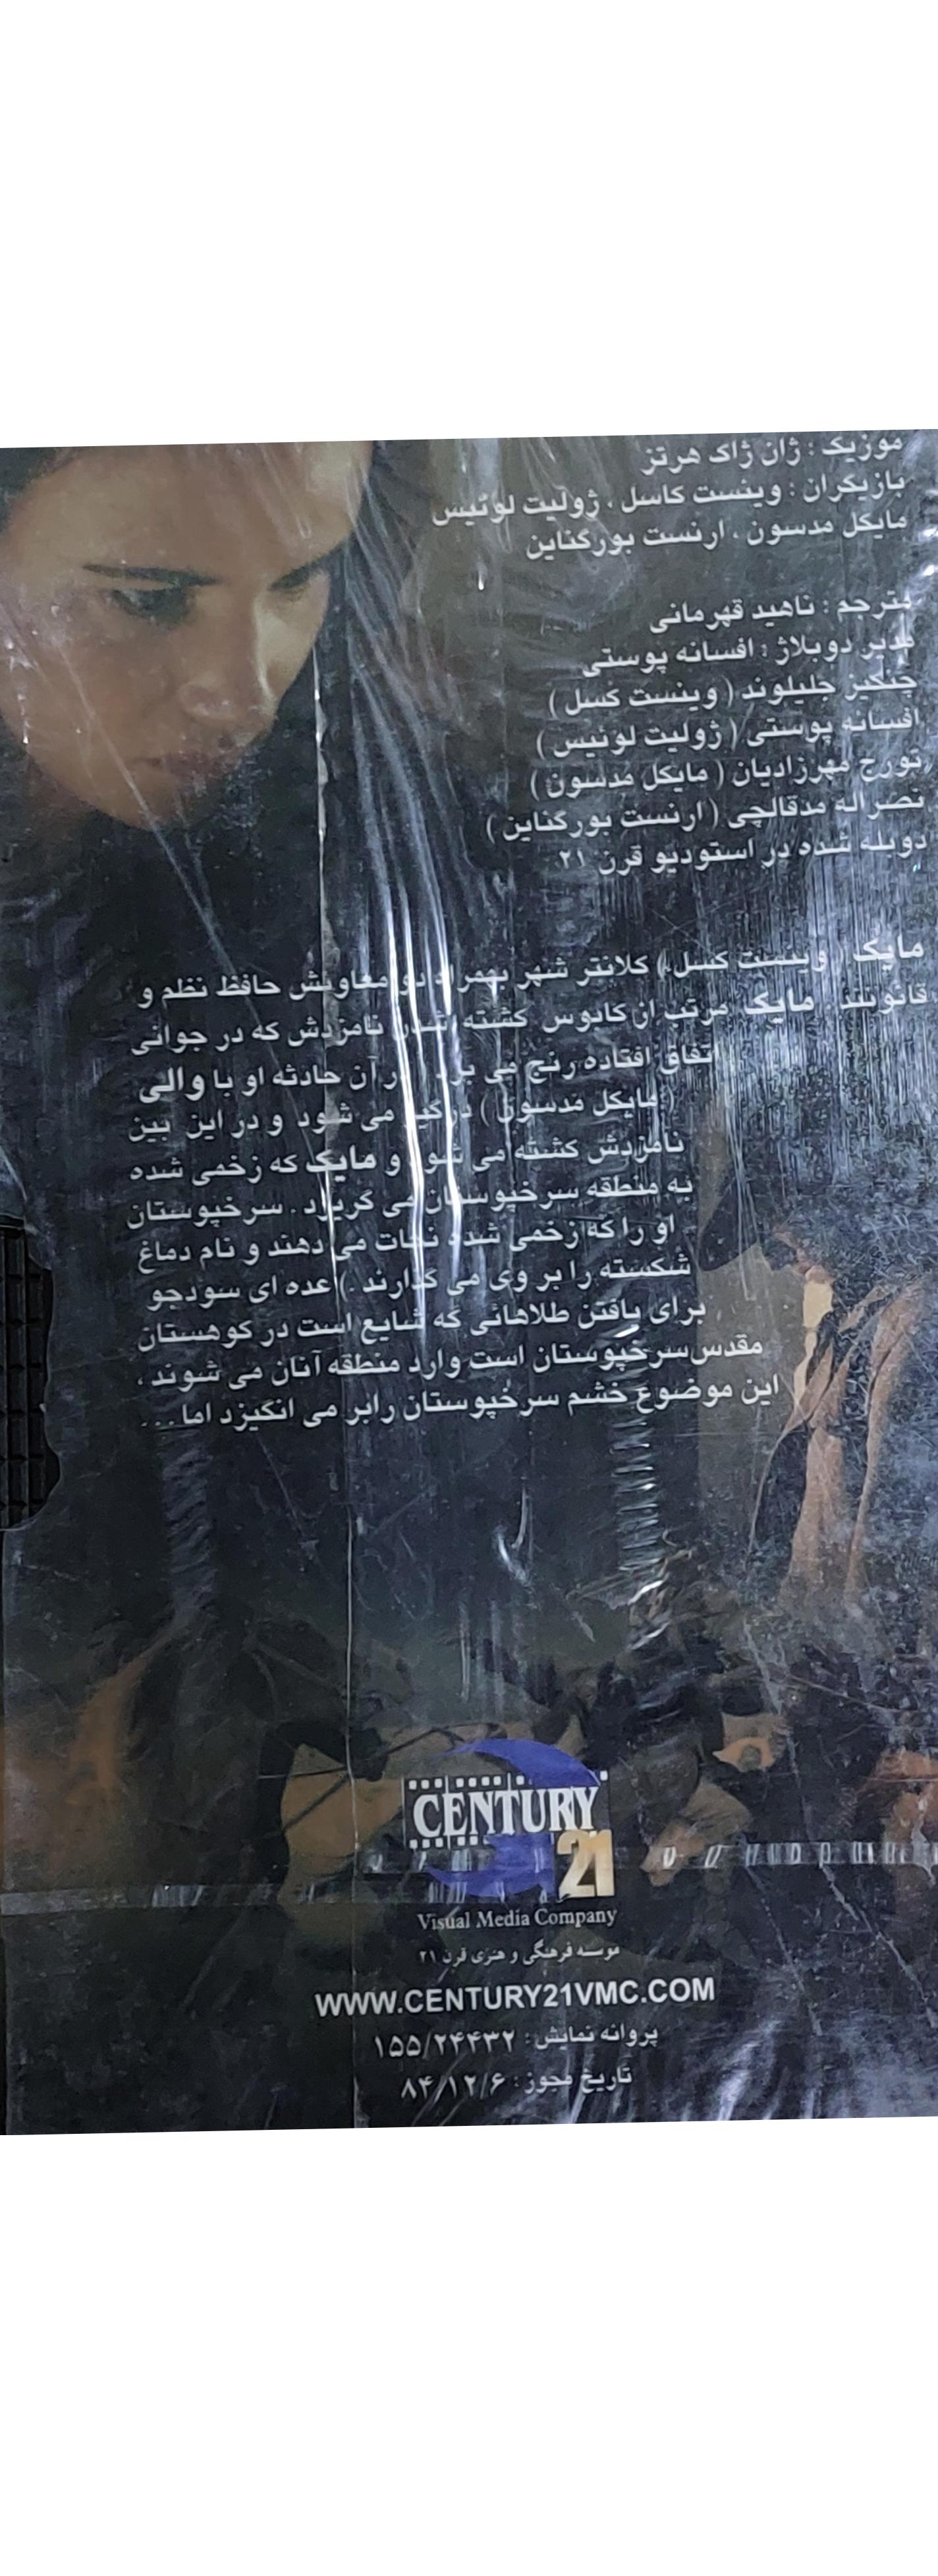 موزیک : ژان ژاک هرتز
بازیگران : وینست کاسل ، ژولیت لوئیس
مایکل مدسون ، ارنست بورگناین
مترجم : ناهید قهرمانی
مدیر دوبلاژ : افسانه پوستی
چنگیز جلیلوند ( وینست کسل )
افسانه پوستی ( ژولیت لوئیس )
تورج مهرزادیان ( مایکل مدسون )
نصراله مدقالچی ( ارنست بورگناین )
دوبله شده در استودیو قرن ۲۱
مایک ( وینست کسل ) کلانتر شهر بهمراه دو معاونش حافظ نظم و
قانونند مایک مرتب از کابوس کشته شدن نامزدش که در جوانی
اتفاق افتاده رنج می برد در آن حادثه او با والی
( مایکل مدسون ) درگیر می شود و در این بین
نامزدش کشته می شود و مایک که زخمی شده
به منطقه سرخپوستان می گریزد . سرخپوستان
او را که زخمی شده نجات می دهند و نام دماغ
شکسته را بر وی می گذارند . ) عده ای سودجو
برای یافتن طلاهائی که شایع است در کوهستان
مقدس سرخپوستان است وارد منطقه آنان می شوند ،
این موضوع خشم سرخپوستان رابر می انگیزد اما ...
CENTURY
21
Visual Media Company
موسسه فرهنگی و هنری قرن ۲۱
WWW.CENTURY21VMC.COM
پروانه نمایش : ۱۵۵/۲۴۴۳۲
تاریخ مجوز : ۸۴/۱۲/۶